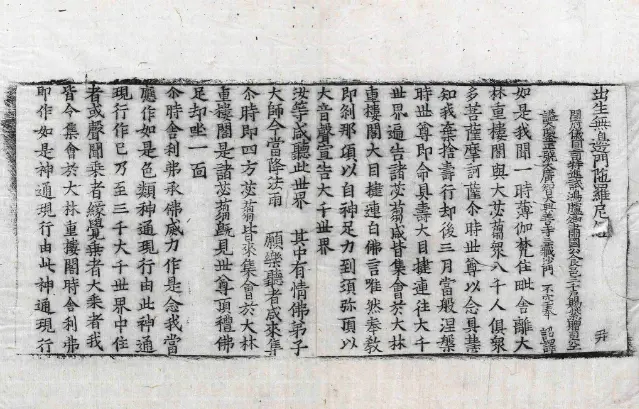 出生無邊門陁羅尼經 丹
開府儀同三司特進試鴻臚卿肅國公食邑三千戶賜紫贈司空
謚大鑒正號大廣智大興善寺三藏沙門 不空奉 詔譯
如是我聞一時薄伽梵住毗舍離大
林重樓閣與大苾芻衆八千人俱衆
多菩薩摩訶薩尒時世尊以念具慧
知我棄捨壽行却後三月當般涅槃
時世尊即命具壽大目揵連往大千
世界遍告諸苾芻咸皆集會於大林
重樓閣大目揵連白佛言唯然奉教
即刹那頃以自神足力到須弥頂以
大音聲宣告大千世界
汝等咸聽此世界 其中有情佛弟子
大師今當降法雨 願樂聽者咸來集
尒時即四方苾芻皆來集會於大林
重樓閣是諸苾芻既見世尊頂禮佛
足却坐一面
尒時舍利弗承佛威力作是念我當
應作如是色類神通現行由此神通
現行作已乃至三千大千世界中住
者或聲聞乘者緣覺乘者大乘者我
皆令集會於大林重樓閣時舍利弗
即作如是神通現行由此神通現行